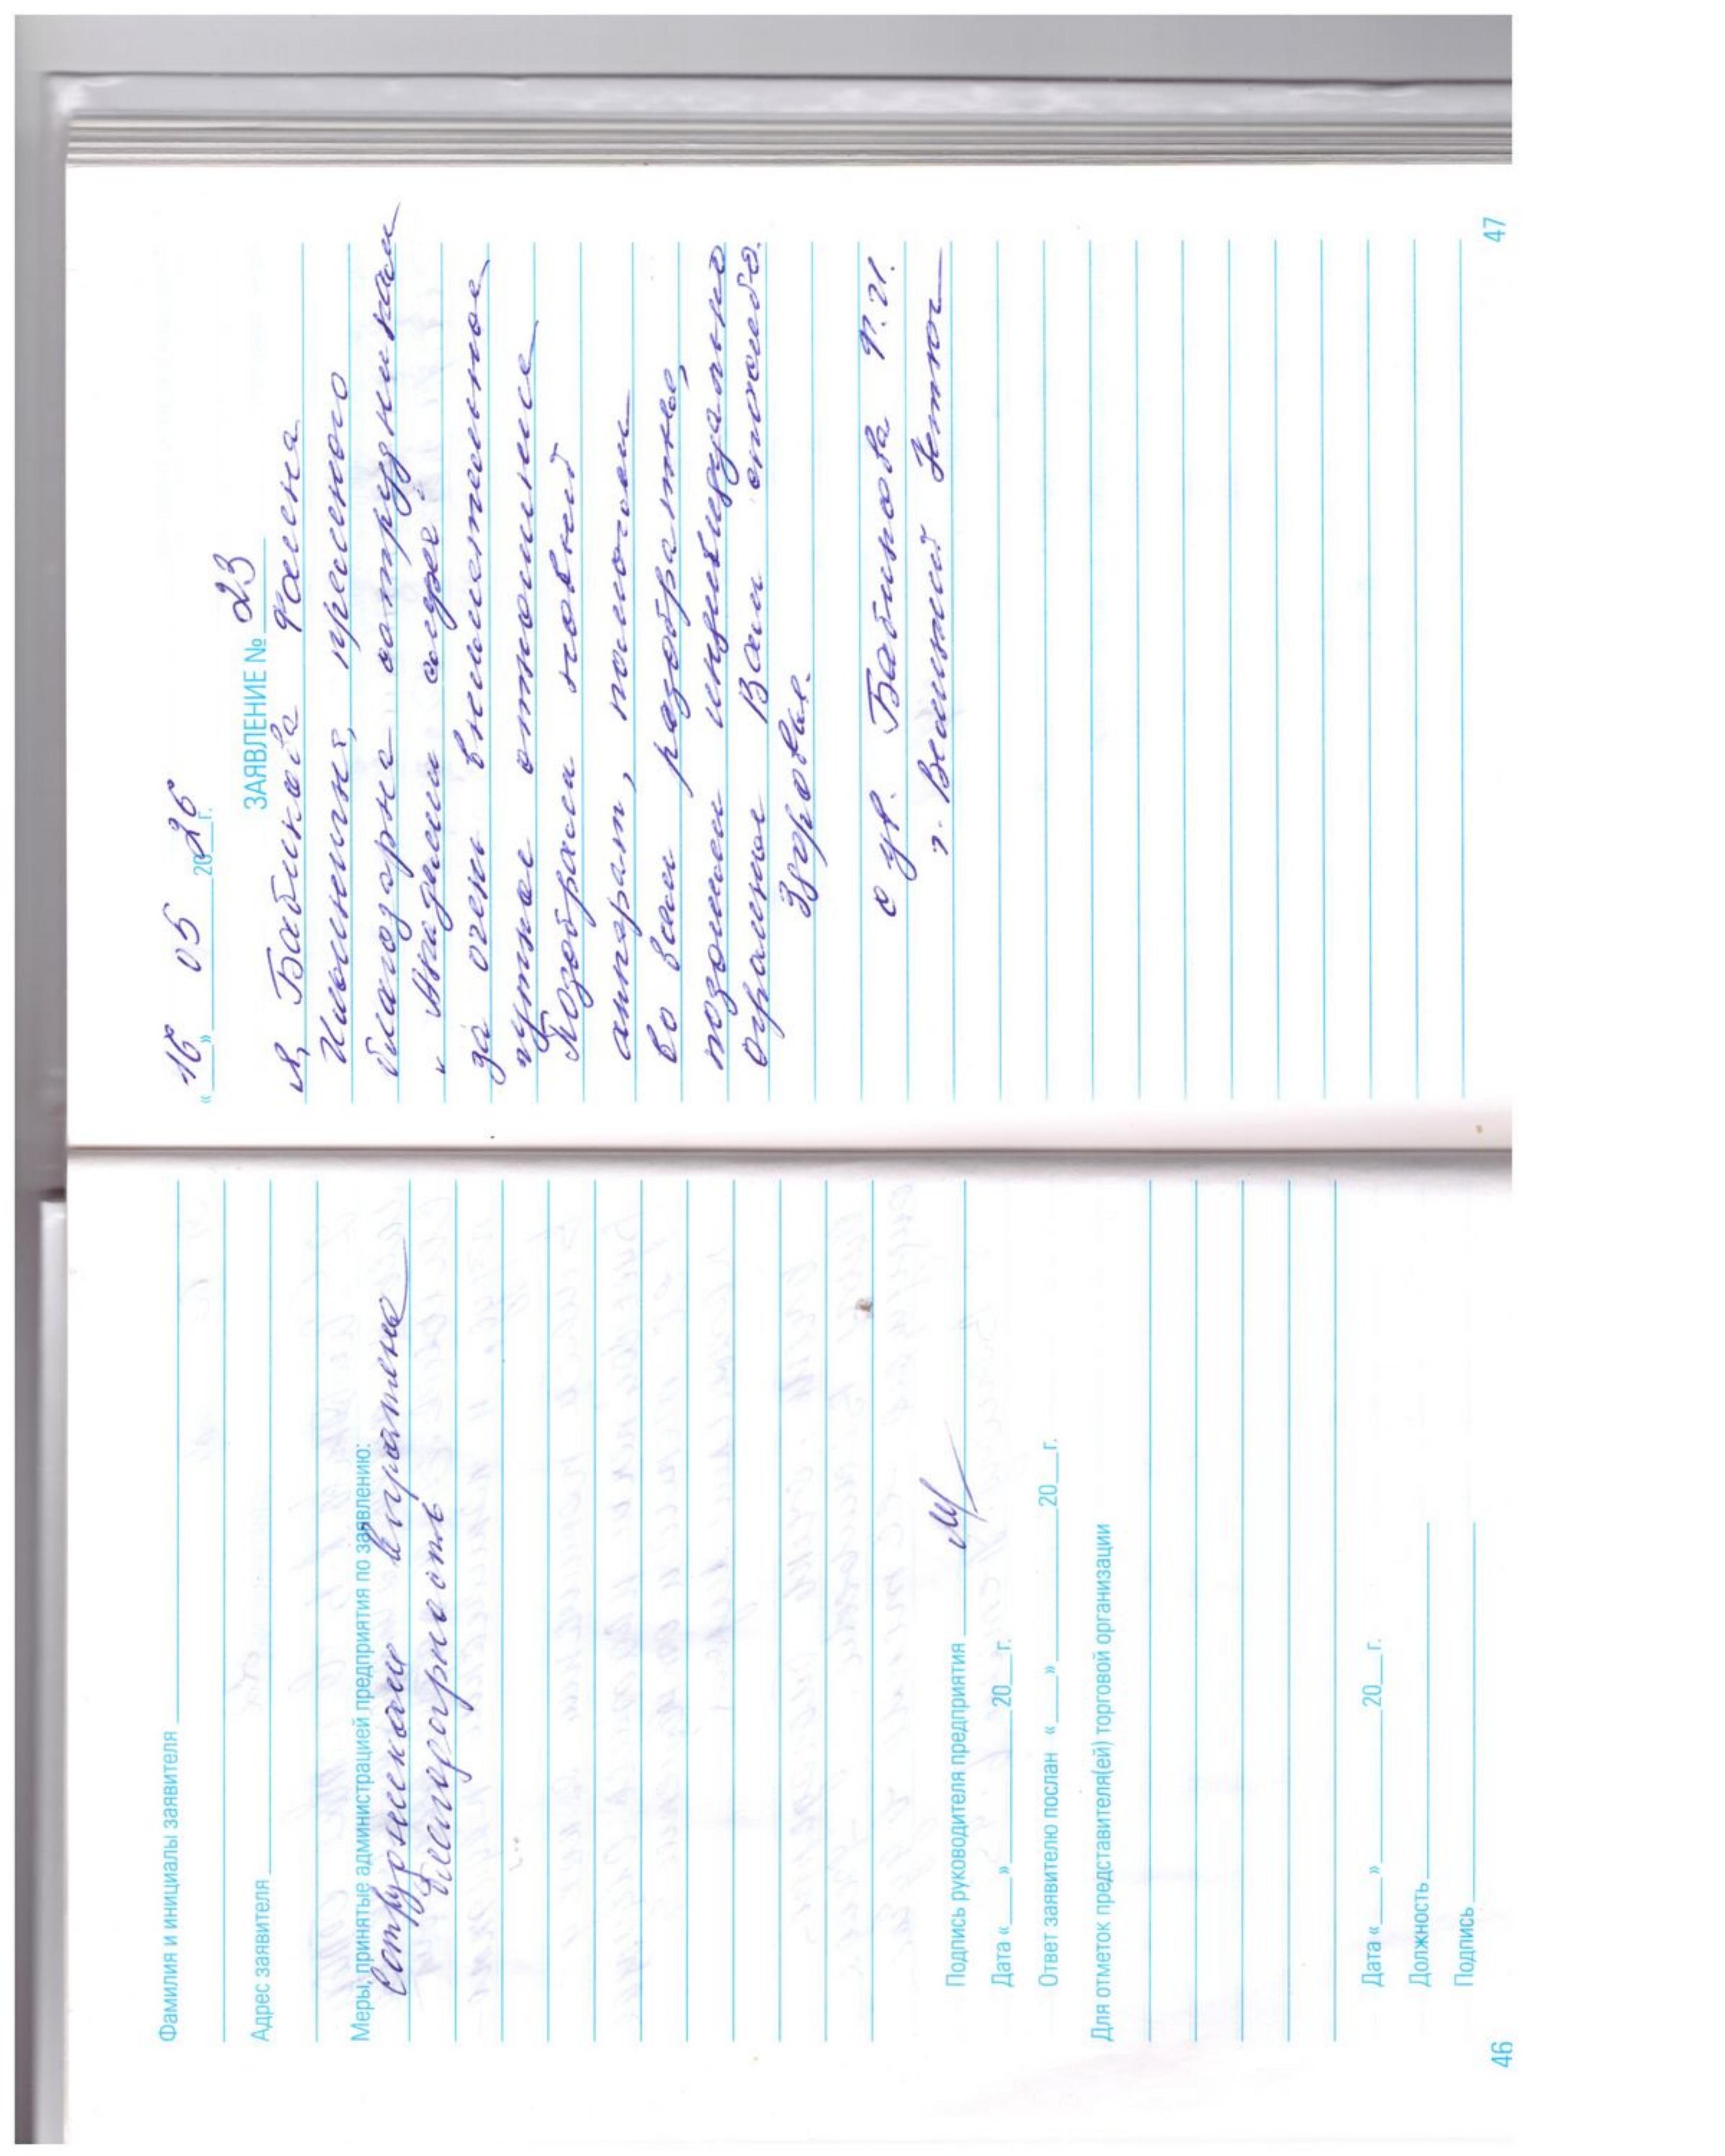 Фамилия и инициалы заявителя
Адрес заявителя
Меры, принятые администрацией предприятия по заявлению:
Сотрудникам выражена
благодарность
Подпись руководителя предприятия
Дата «___»________20__г.
Ответ заявителю послан «___»________20__г.
Для отметок представителя(ей) торговой организации
Дата «___»________20__г.
Должность
Подпись
46
«16» 05 2026 г.
ЗА�явЛЕНИЕ № 23
Я, Бабинова
благодарна сотрудникам
"Академии слуха"
за очень внимательное
чуткое отношение
Подобрали новый
аппарат, помогли
во всем разобраться,
позоним индивидуально
огромное Вам спасибо.
Здоровья.
с ув. Бабинова Ф.И.
г. Великий Устюг
47